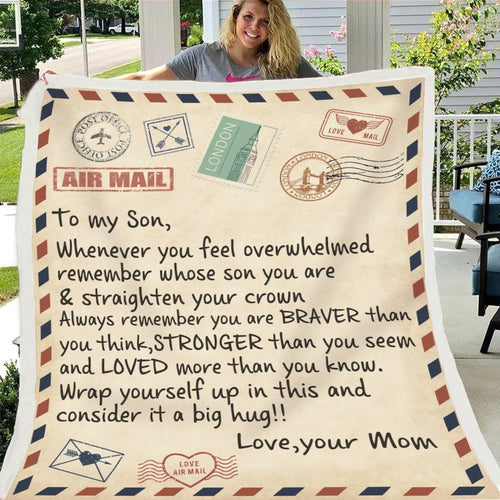 POST OFFICE
POST OFFICE
LONDON
LOVE MAIL
AIR MAIL
LONDON
To my Son,
Whenever you feel overwhelmed
remember whose son you are
& straighten your crown
Always remember you are BRAVER than
you think,STRONGER than you seem
and LOVED more than you know.
Wrap yourself up in this and
consider it a big hug!!
Love,your Mom
LOVE
AIR MAIL